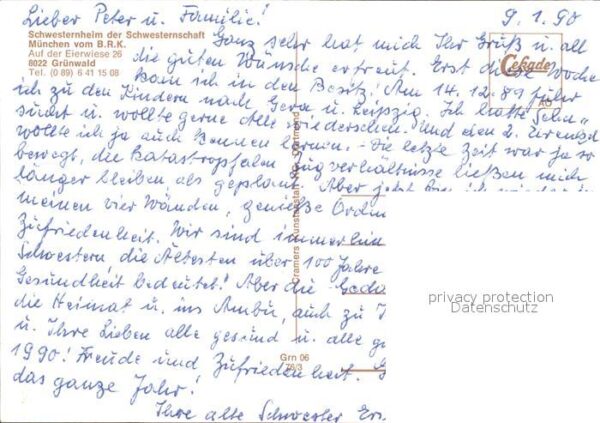 Lieber Peter u. Familie! 9.1.90
Schwesternheim der Schwesternschaft
München vom B.R.K.
Auf der Eierwiese 26
8022 Grünwald
Tel. (0 89) 6 41 15 08
Ganz sehr hat mich Ihr Gruß u. all
die guten Wünsche erfreut. Erst diese Woche
kam ich in den Besitz! Am 14.12.89 fuhr
ich zu den Kindern nach Gera u. Leipzig. Ich hatte Sehn"
sucht u. wollte gerne Alle wiedersehen. Und den 2. Urenkel
wollte ich ja auch kennen lernen. - Die letzte Zeit war ja so
bewegt, die katastrophalen Zugverhältnisse ließen mich
länger bleiben als geplant. Aber jetzt bin ich wieder in
meinen vier Wänden, genieße Ordn
Zufriedenheit. Wir sind immerhin
Schwestern die Ältesten über 100 Jahre
Gesundheit bedeutet! Aber die Geda
die Heimat u. ins Ambu, auch zu I
u. Ihre Lieben alle gesund u. alle g
1990! Freude und Zufriedenheit. G
das ganze Jahr!
Ihre alte Schwester Er
Cekade
Cramers Kunstanstalt Dortmund
Grn 06
79/3
privacy protection
Datenschutz